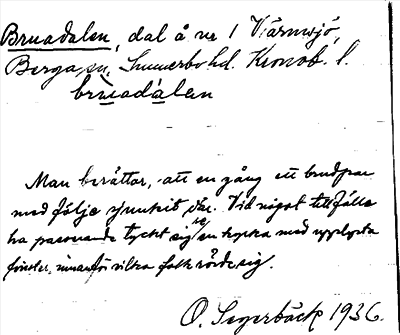 Bruadalen, dal å nr 1 Värmsjö,
Berga sn, Sunnerbo hd. Kronob. l.
brùadálen
Man berättar, att en gång ett brudpar
med följe sjunkit där. Vid något tillfälle
ha passerande tyckt sig se en kyrka med upplysta
fönster, innanför vilka folk rörde sig.
O. Segerbäck 1936.